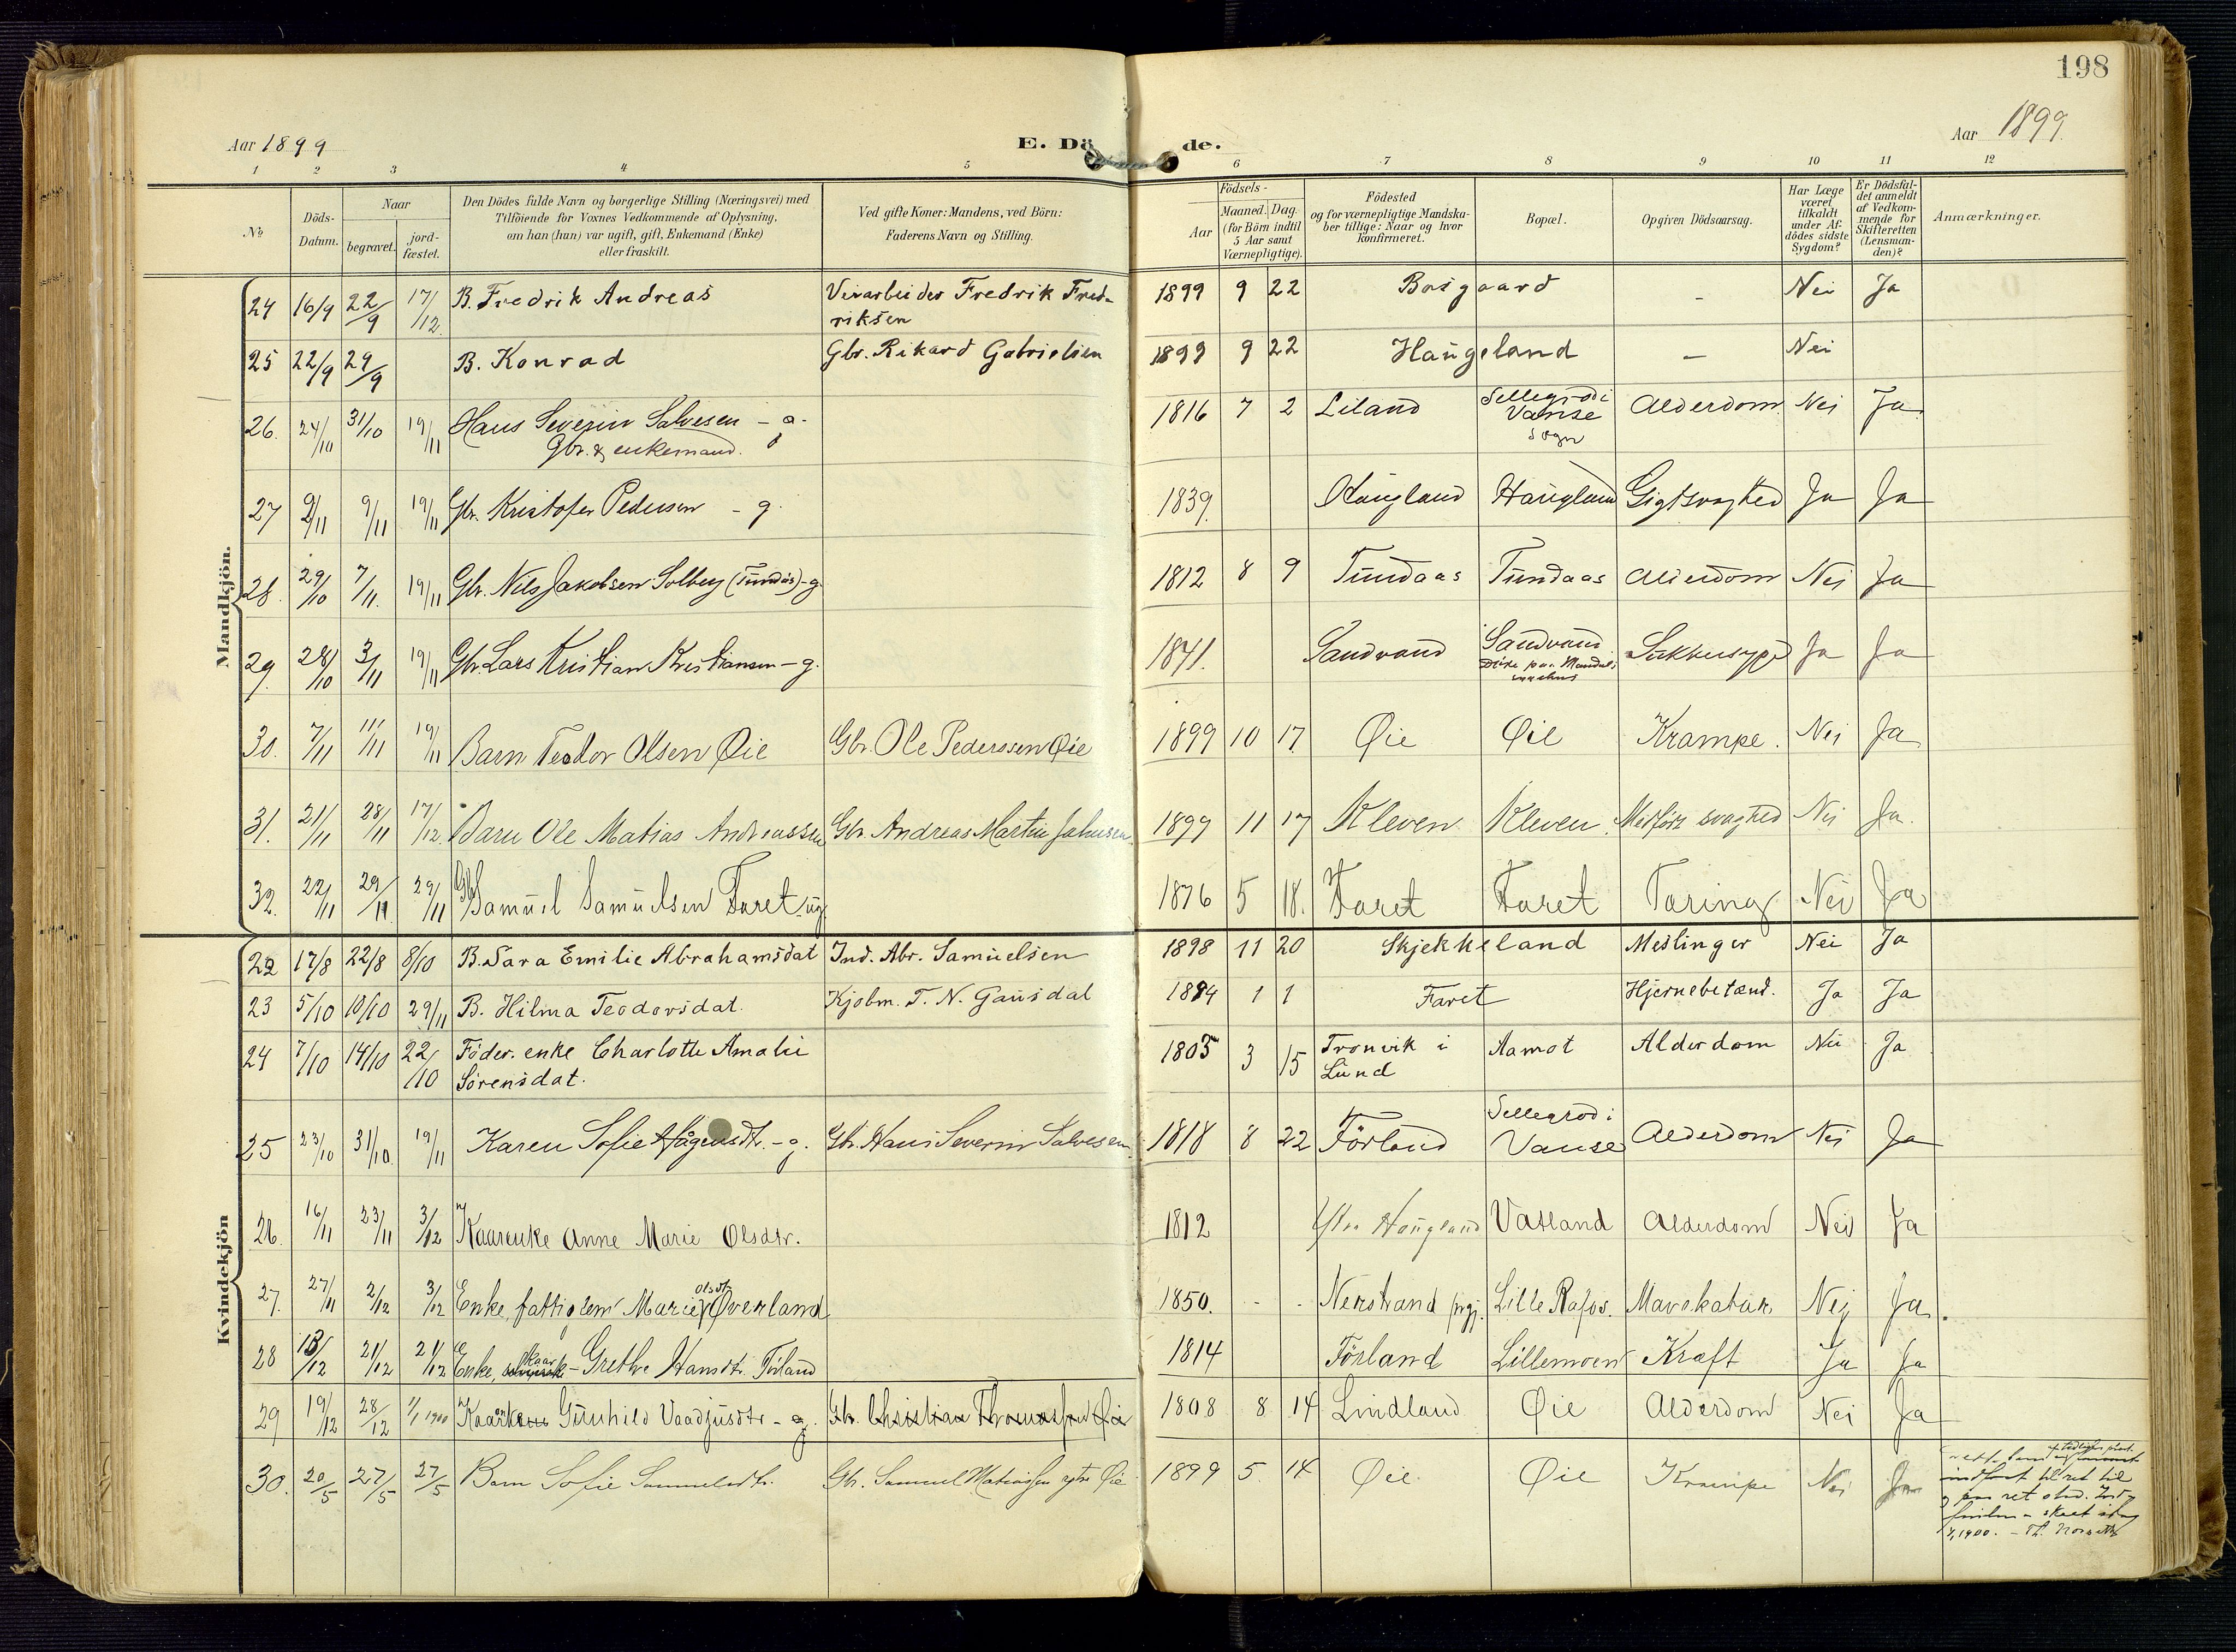 198
Aar 1899
E. Dö de.
Aar 1899.
1 2 3 4 5 6 7 8 9 10 11 12
No
Döds-
Datum.
Naar
begravet.
jord-
fæstet.
Den Dödes fulde Navn og borgerlige Stilling (Næringsvei) med
Tilföiende for Voxnes Vedkommende af Oplysning,
om han (hun) var ugift, gift, Enkemand (Enke)
eller fraskilt.
Ved gifte Koner: Mandens, ved Börn:
Faderens Navn og Stilling.
Födsels-
Aar
Maaned. Dag.
(for Börn indtil
5 Aar samt
Værnepligtige).
Födested
og for værnepligtige Mandska-
ber tillige: Naar og hvor
konfirmeret.
Bopæl.
Opgiven Dödsaarsag.
Har Læge
været
tilkaldt
under Af-
dödes sidste
Sygdom?
Er Dödsfal-
det anmeldt
af Vedkom-
mende for
Skifteretten
(Lensman-
den)?
Anmærkninger.
Mandkjön.
24 16/9 22/9 17/12 B. Fredrik Andreas Fredrik Fred- 1899 9 22 Bosgaard - Nei Ja
riksen
25 22/9 29/9 B. Konrad Gbr. Rikard Gabrielsen 1899 9 22 Haugeland - Nei
26. 24/10 31/10 19/11 Hans Severin Salvesen - 1816 7 2 Liland Sellegrod i Alderdom Nei Ja
Gbr. & enkemand. Vanse
sogn
27 2/11 9/11 19/11 Gbr. Kristofer Pedersen - g. 1839. Haugland Haugland Gigtsvaghed Ja Ja
28. 29/10 7/11. 19/11 Gbr. Nils Jakobsen Solberg (Tundås) - g. 1812 8 9 Tundaas Tundaas Alderdom Nei Ja
29. 28/10 3/11 19/11 Gbr. Lars Kristian Kristiansen - g. 1841. Sandvand Sandvand Sukkersyge Ja Ja
30. 7/11 11/11 19/11 Barn Teodor Olsen Øie Gbr. Ole Pederssen Øie 1899 10 17 Øie Øie Krampe. Nei Ja
31. 21/11 28/11 17/12. Barn Ole Matias Andreassen Gbr. Andreas Martin 1899 11 17 Kleven Kleven Medført svaghed Nei Ja.
32. 22/11 29/11 29/11 Samuel Samuelsen Faret, ug 1876 5 18. Faret Faret Tæring Nei Ja
Kvindekjön
22 17/8 22/8 8/10 B. Sara Emilie Abrahamsdat Ind. Abr. Samuelsen 1898 11 20 Skjekkeland Meslinger Nei Ja
23 5/10 10/10 29/11 B. Hilma Teodorsdat. Kjøbm. T. N. Gausdal 1894 1 1 Faret Hjernebetænd. Ja Ja
24 7/10 14/10 22/10 Föder. enke Charlotte Amalie 1805 3 15 Tronvik i Aamot Alderdom Nei Ja
Sörensdat. Lund
25 23/10 31/10. 19/11 Karen Sofie Ågensdtr. - g. Gbr. Hans Severin Salvesen. 1818 8 22 Förland Sellegrod i Alderdom Nei Ja
Vanse
26. 16/11 23/11 3/12 Kaarenke Anne Marie Olsdtr. 1812 Haugland Vatland Alderdom Nei Ja
27. 27/11 2/12 3/12 Enke, fattiglem Marie Olsdt. Øverland 1850. - - Nerstrand prgj. Lille Rafos. Mavekatar. Nej Ja.
28 13/12 21/12 21/12 Enke, Kaar- Grethe Hansdtr. Förland 1814 Förland Lillemoen Kræft Ja Ja
29 19/12 28/12 1/1 1900 Gunhild Vaadjusdtr - g. Gbr. Christian Øie 1808 8 14 Lindland Øie Alderdom Nei Ja
30. 20/5 27/5 27/5 Barn Sofie Samuelsdtr. Gbr. Samuel Matiassen Øie 1899 5. 14 Øie Øie Krampe Nei Ja
1900.